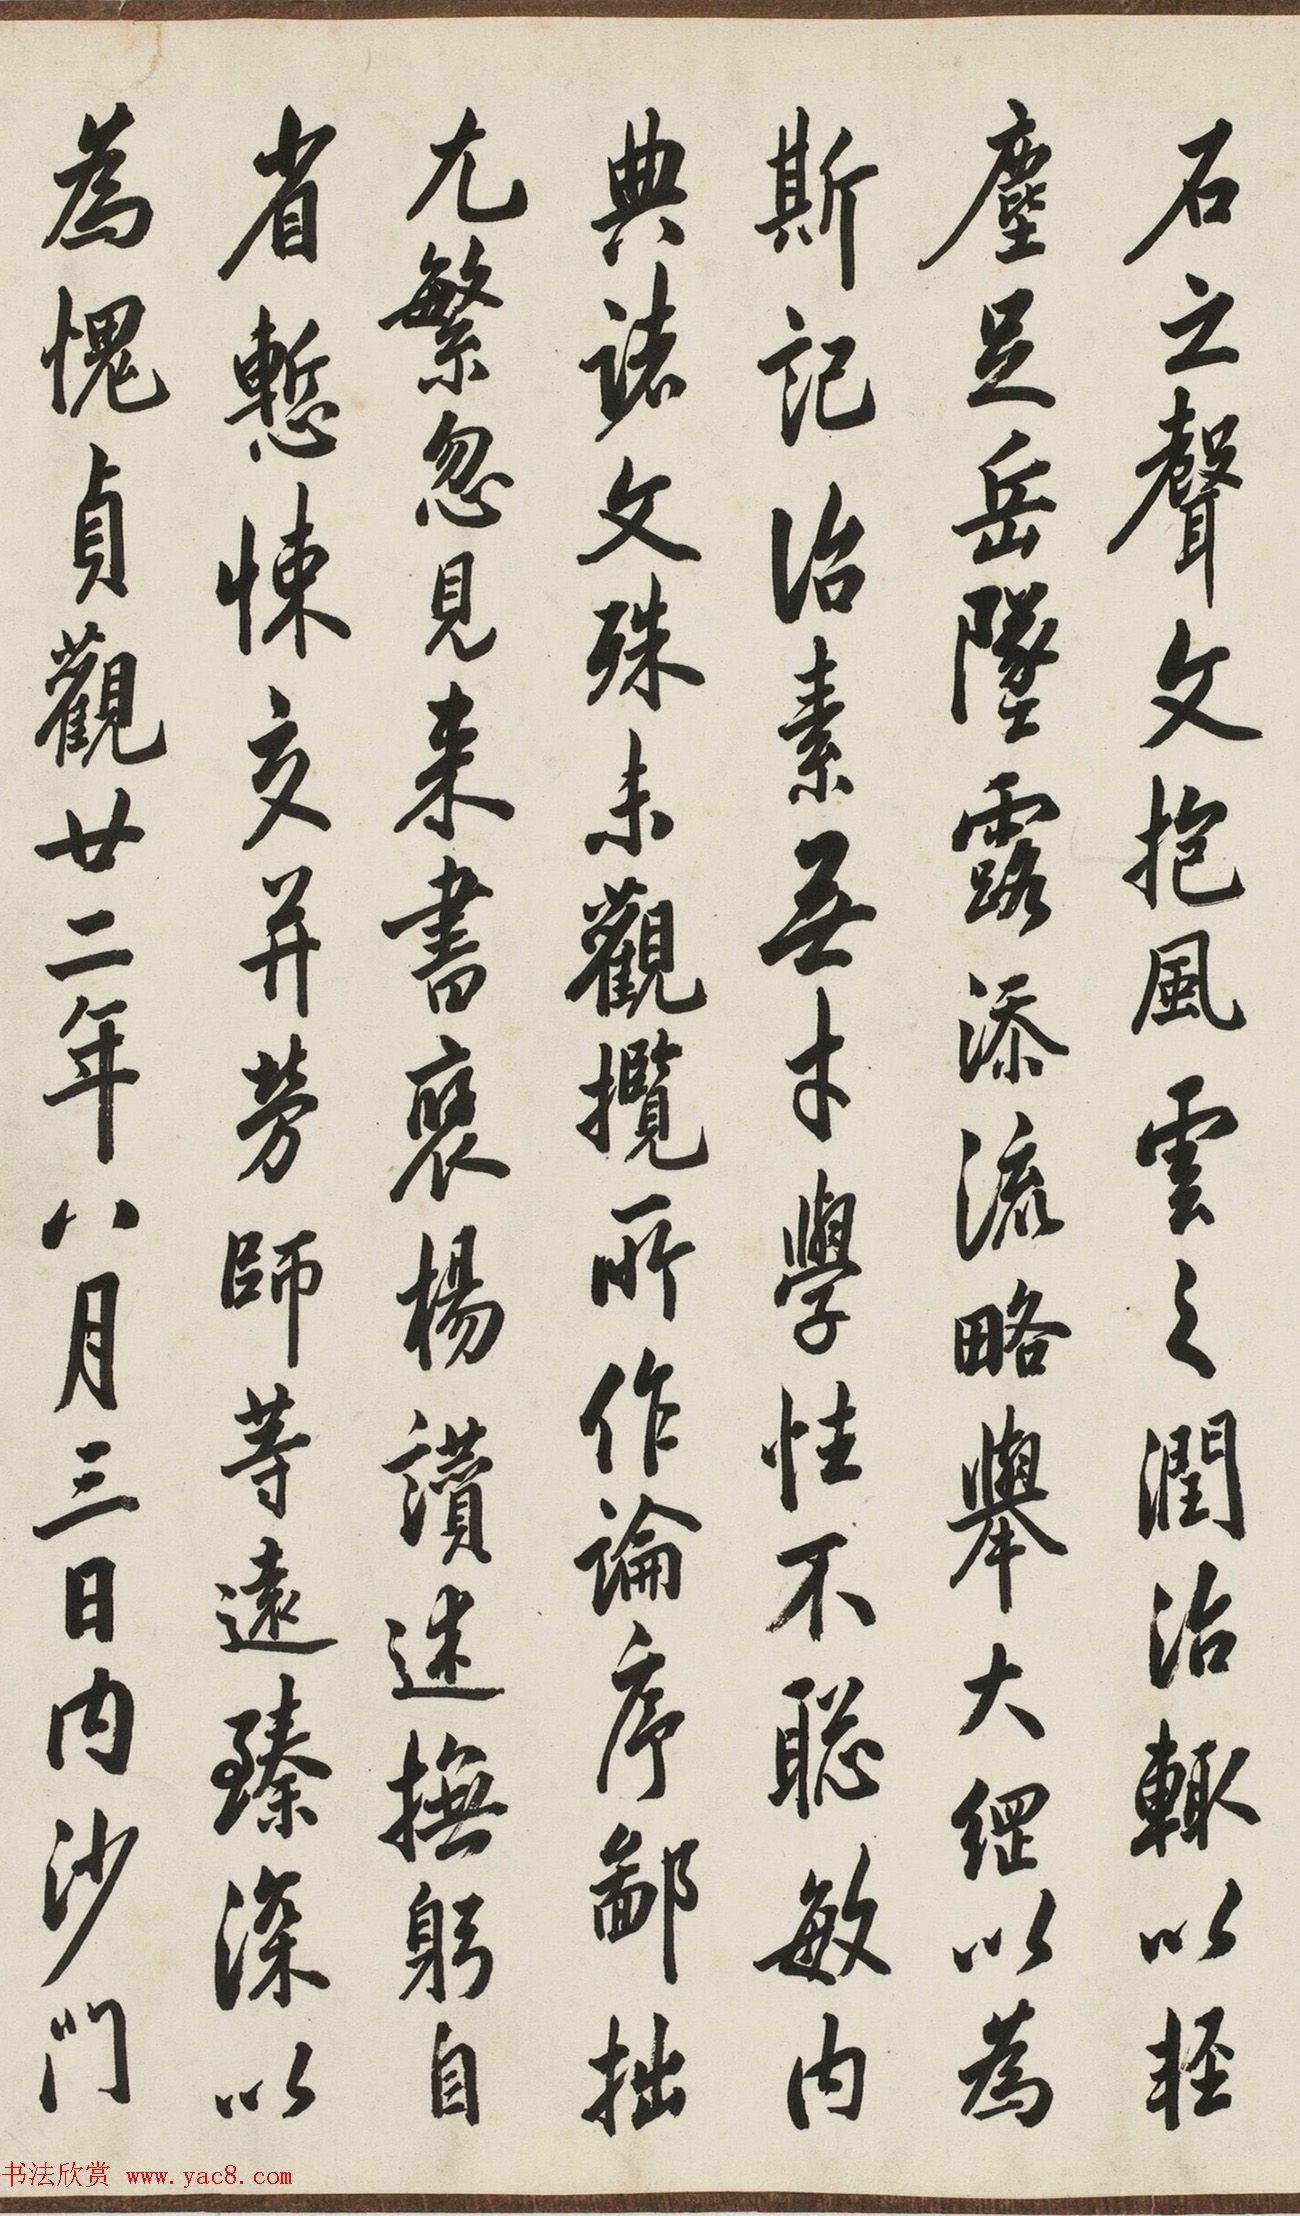 石之聲文抱風雲之潤治輙以輕
塵足岳墜露添流略舉大綱以為
斯記治素無才學性不聰敏内
典諸文殊未觀攬所作論序鄙拙
尤繁忽見来書襃楊讚述撫躬自
省慙悚交并勞師等遠臻深以
為愧貞觀廿二年八月三日内沙門
书法欣赏 www.yac8.com